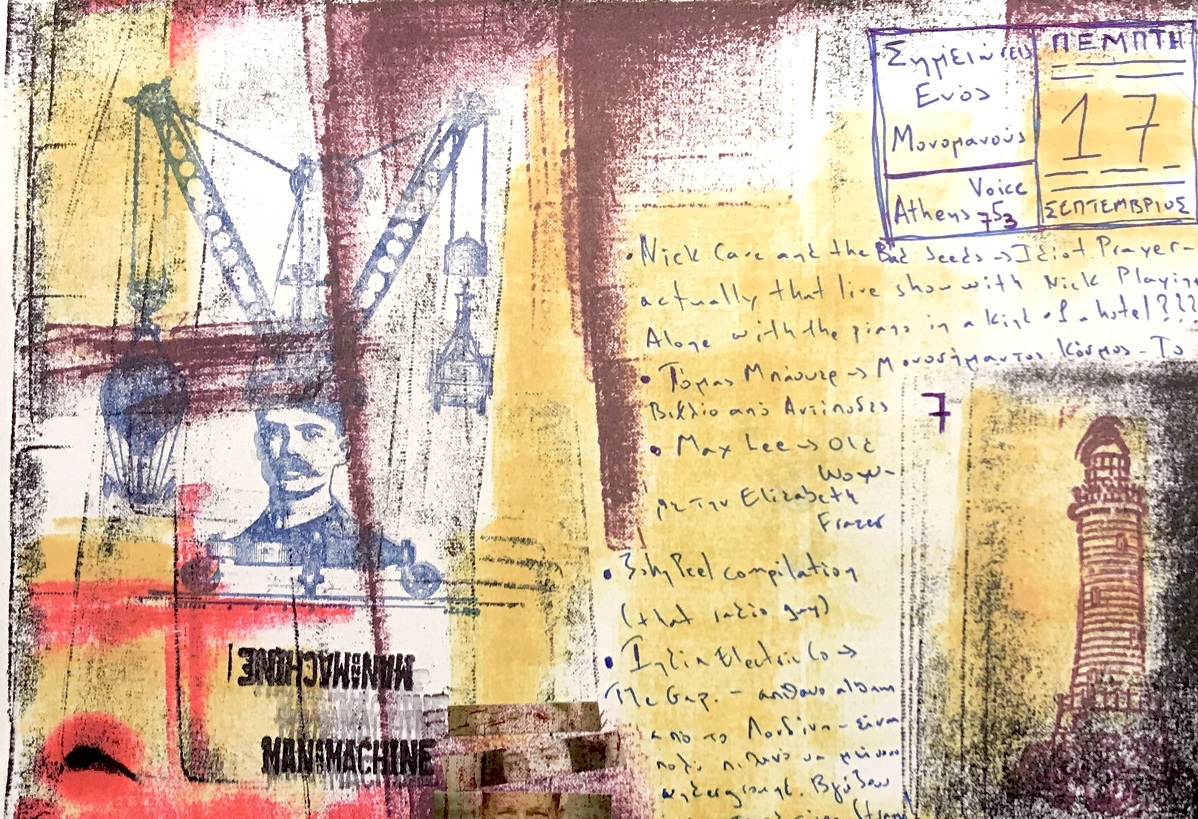 Σημειώσεις
Ενός
Μονομανούς
Voice
Athens 753
ΠΕΜΠΤΗ
17
ΣΕΠΤΕΜΒΡΙΟΣ
• Nick Cave and the Bad Seeds → Idiot Prayer -
actually that live show with Nick Playing
Alone with the piano in a kind of a hotel???
• Τόμας Μπάουερ → Μονοσήμαντος Κόσμος - Το
Βιβλίο από Αντίποδες
7
• Max Lee → Old
Woman
με την Elizabeth
Frazer
• John Peel compilation
(that radio guy)
• India Electric Co →
The Gap. - απίθανο album
από το Λονδίνο - είναι
πολύ πιθανό να μείνουν
underground. Βγάζουν
MAN AND MACHINE
MAN AND MACHINE